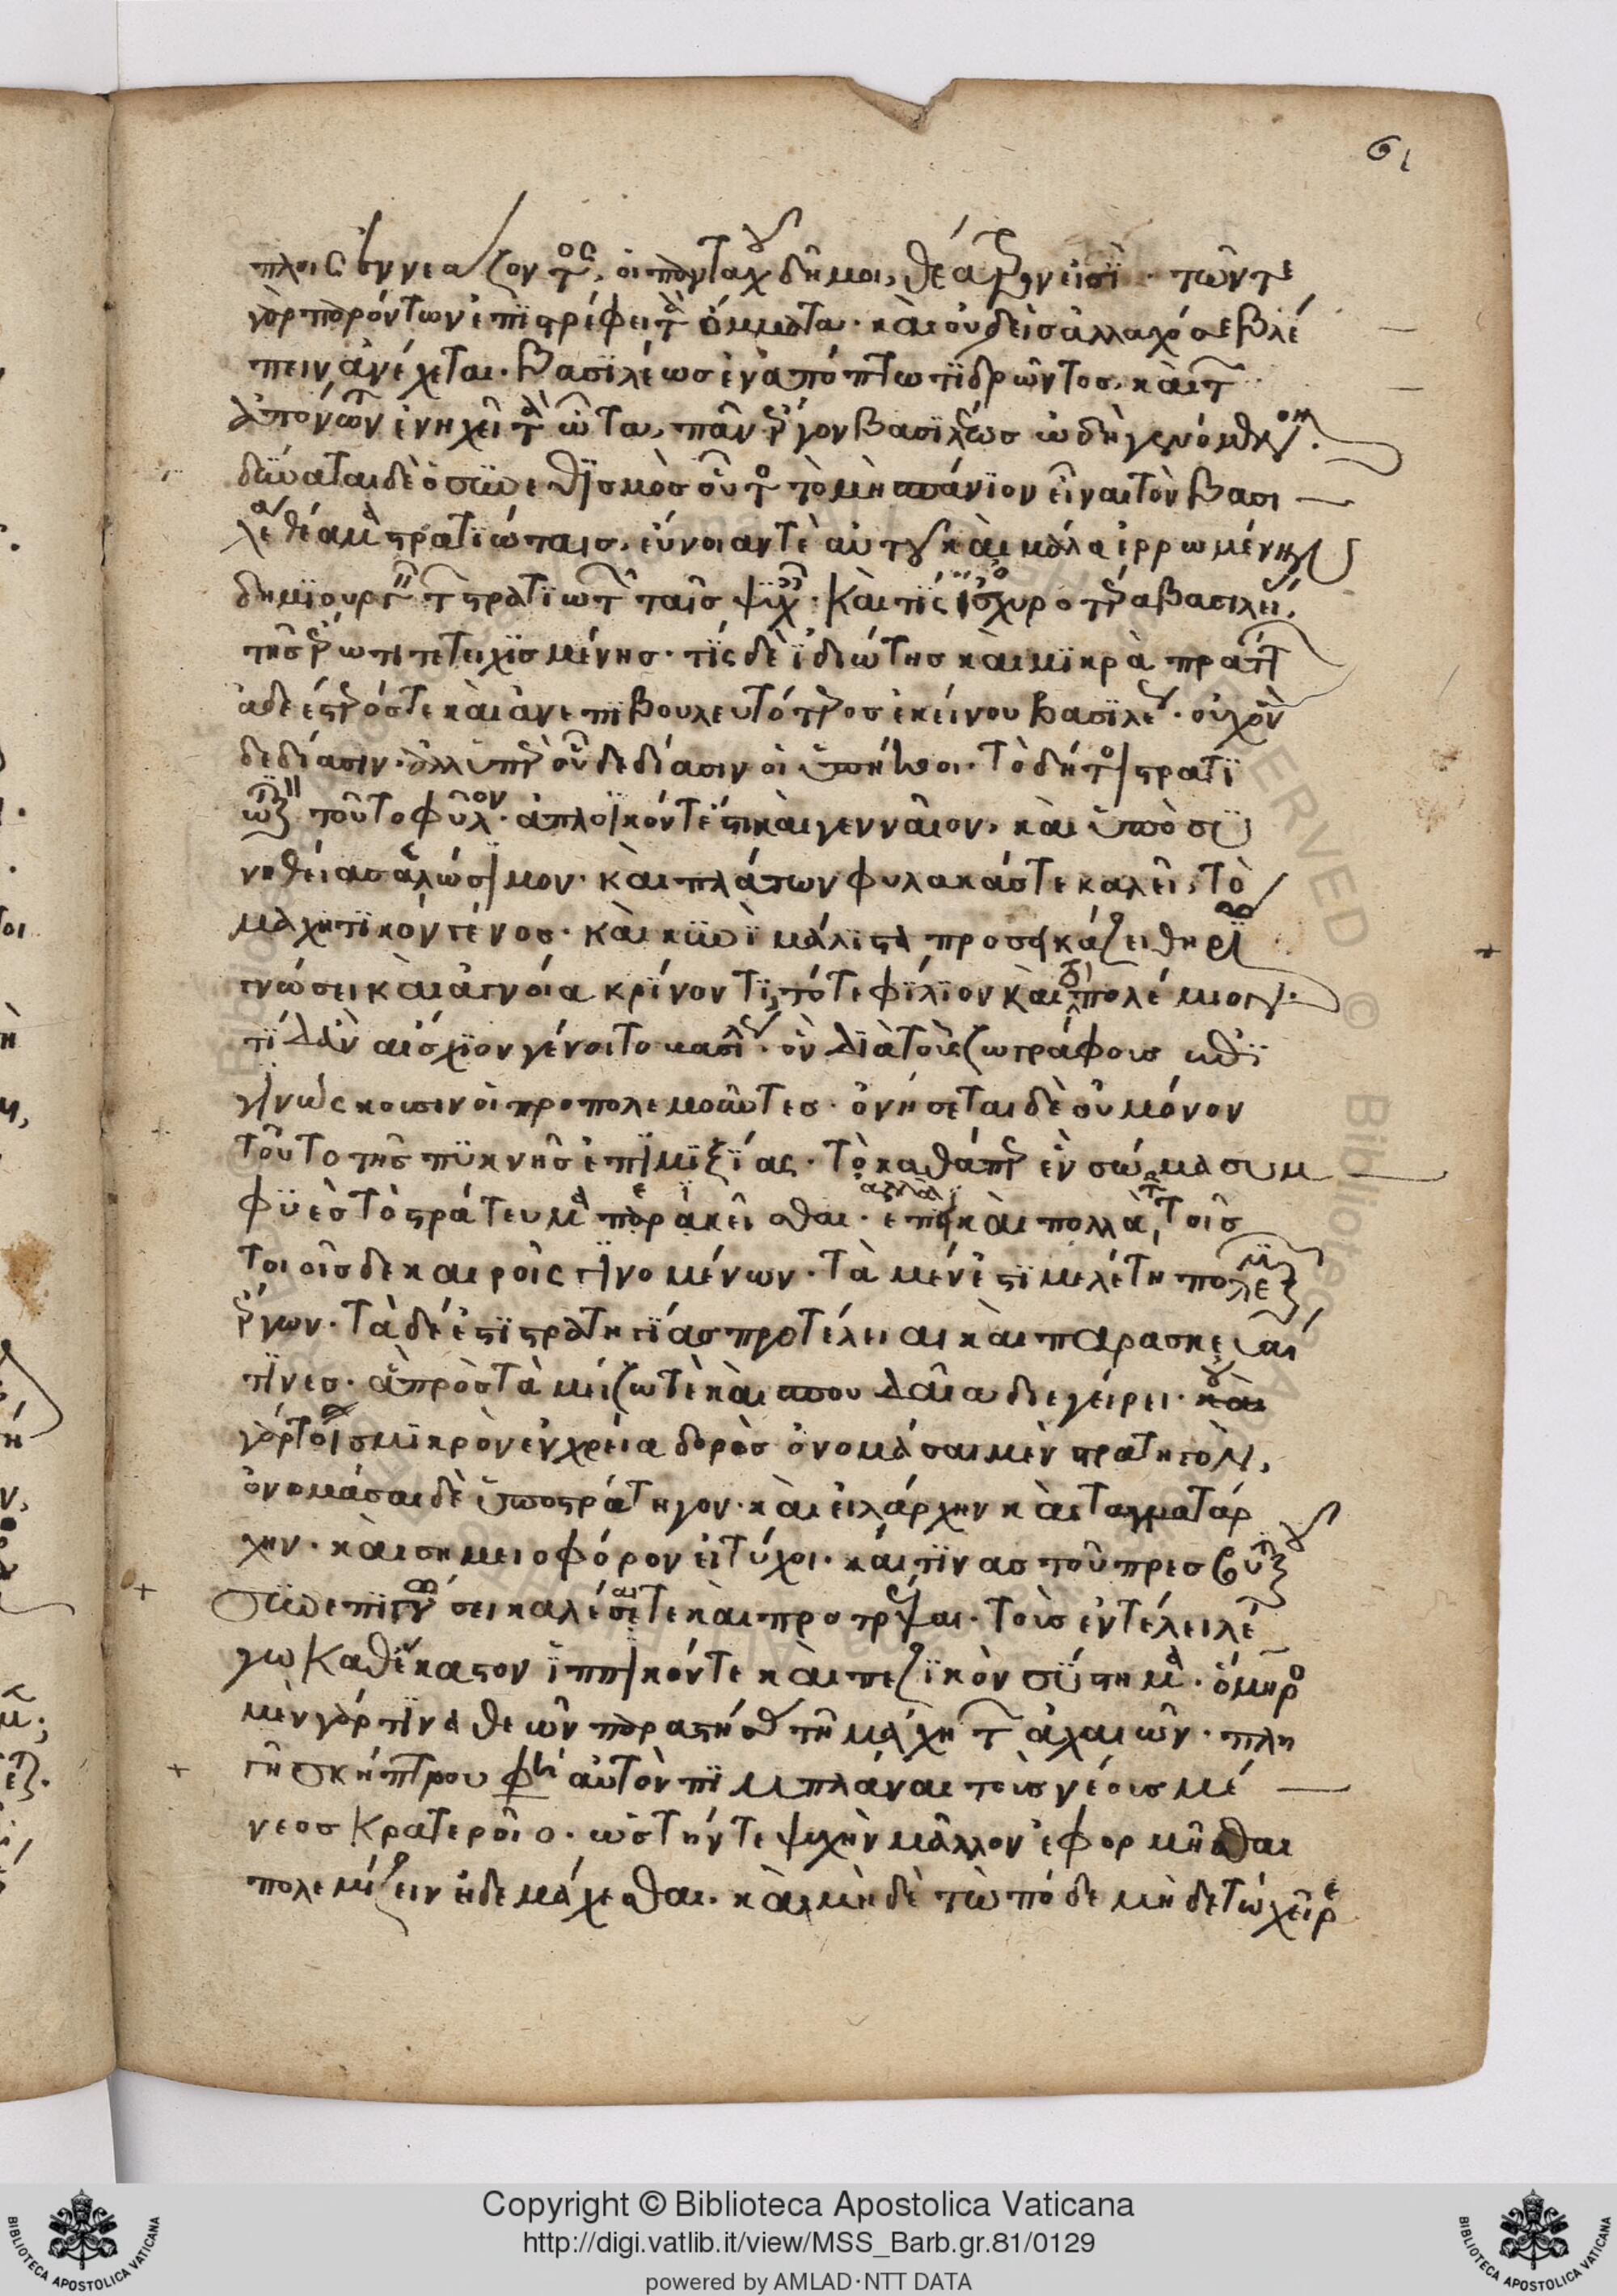 61
πλοις ἐννεάζοντος, οἱ πανταχοῦ δῆμοι, θέατρον εἰσὶ · τῶν τε
γὰρ παρόντων ἐπιστρέφει τὰ ὄμματα · καὶ οὐδεὶς ἀλλαχόσε βλέ
πειν ἀνέχεται · βασιλέως ἐν ἀπόπτω τι δρῶντος, καὶ τῶν
ἀπόντων ἐνηχεῖ τὰ ὦτα, πᾶν ἔργον βασιλέως ὠδὴ γενόμενον.
δύναται δὲ ὁ συνεθισμὸς οὗτος τὸ μὴ σπάνιον εἶναι τὸν βασι
λέα θέαμα στρατιώταις, εὔνοιάν τε αὐτοῦ καὶ μάλα ἐρρωμένην
δημιουργεῖν τῶν στρατιωτῶν ταῖς ψυχαῖς · καὶ τίς ἰσχυροτέρα βασιλεία,
τῆς ἔρωτι τετειχισμένης · τίς δὲ ἰδιώτης καὶ μικρὰ πράττων
ἀδεέστερός τε καὶ ἀνεπιβουλευτότερος ἐκείνου βασιλέως · οὐχ ὃν
δεδίασιν · ἀλλ' ὑπὲρ οὗ δεδίασιν οἱ ὑπήκοοι · τὸ δή τοι στρατι
ωτῶν τοῦτο φῦλον · ἁπλοϊκόν τέ ἐστι καὶ γενναῖον, καὶ ὑπὸ συ
νηθείας ἁλώσιμον · καὶ πλάτων φύλακάς τε καλεῖ, τὸ
μαχητικὸν γένος · καὶ κυνὶ μάλιστα προσεικάζει θηρίω
γνώσει καὶ ἀγνοία κρίνοντι, τό τε φίλιον καὶ τὸ πολέμιον.
τί δ' ἂν αἴσχιον γένοιτο βασιλέως · ὃν διὰ τοὺς ζωγράφοις
γινώσκουσιν οἱ προπολεμοῦντες · ὀνήσεται δὲ οὐ μόνον
τοῦτο τῆς πυκνῆς ἐπιμιξίας · τὸ καθάπερ ἓν σῶμα συμ
φυὲς τὸ στράτευμα παρακεῖσθαι · ἐπεὶ καὶ πολλὰ, ἀλλὰ τοῖς
τοιοῖσδε καιροῖς γινομένων · τὰ μέν ἐστι μελέτη πολεμικῶν
ἔργων · τὰ δέ ἐστι στρατηγίας προτέλειαι καὶ παρασκευαί
τινες · ἃ πρὸς τὰ μείζω τὲ καὶ σπουδαῖα διεγείρει · οὐ
γάρ τοι σμικρὸν ἐν χρεία δορὸς ὀνομάσαι μὲν στρατηγὸν,
ὀνομάσαι δὲ ὑποστράτηγον · καὶ εἰλάρχην καὶ ταγματάρ
χην · καὶ σημειοφόρον εἰ τύχοι · καί τινας τοῦ πρεσβυτέρου
σὺν ἐπιγνώσει καλέσαι τε καὶ προτρέψαι · τοὺς ἐν τέλει λέ
γω καθ' ἕκαστον ἱππικόν τε καὶ πεζικὸν σύστημα · ὅμηρος
μὲν γάρ τινα θεῶν παραστήσας τῆ μάχη τῶν ἀχαιῶν · πλη
γῆ σκήπτρου φησὶ αὐτὸν πιμπλάναι τοὺς νέους μέ
νεος κρατεροῖο · ὡς τήν τε ψυχὴν μᾶλλον ἐφορμῆσθαι
πολεμίζειν ἠδὲ μάχεσθαι · καὶ μὴ δὲ τὼ πόδε μὴ δὲ τὼ χεῖρε
Copyright © Biblioteca Apostolica Vaticana
http://digi.vatlib.it/view/MSS_Barb.gr.81/0129
powered by AMLAD·NTT DATA
BIBLIOTECA APOSTOLICA VATICANA
BIBLIOTECA APOSTOLICA VATICANA